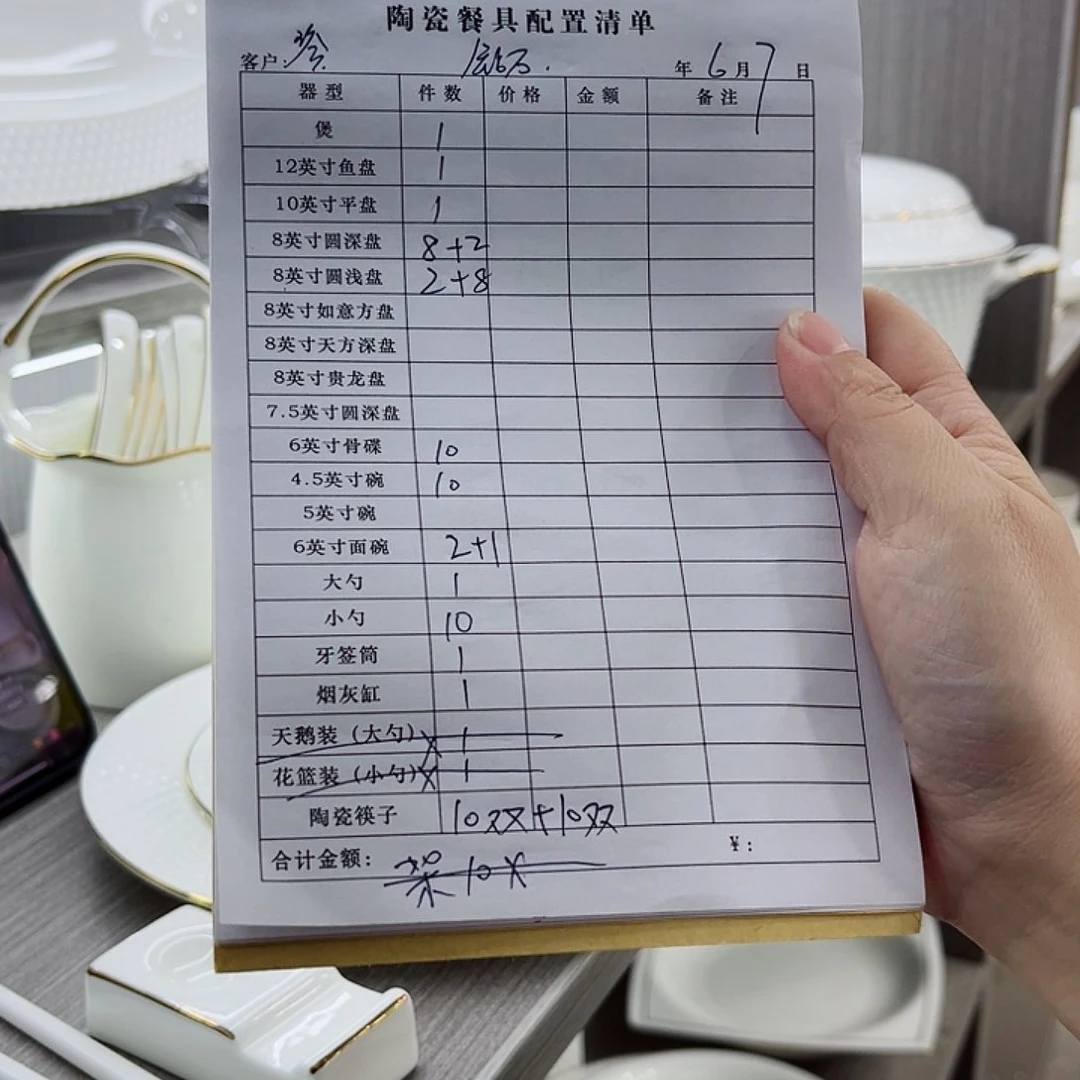 陶瓷餐具配置清单
客户: 年 6 月 7 日
器型 件数 价格 金额 备注
煲 1
12英寸鱼盘 1
10英寸平盘 1
8英寸圆深盘 8+2
8英寸圆浅盘 2+8
8英寸如意方盘
8英寸天方深盘
8英寸贵龙盘
7.5英寸圆深盘
6英寸骨碟 10
4.5英寸碗 10
5英寸碗
6英寸面碗 2+1
大勺 1
小勺 10
牙签筒 1
烟灰缸 1
天鹅装(大勺) X 1
花篮装(小勺) X 1
陶瓷筷子 10双+10双
合计金额: 架10X ¥: